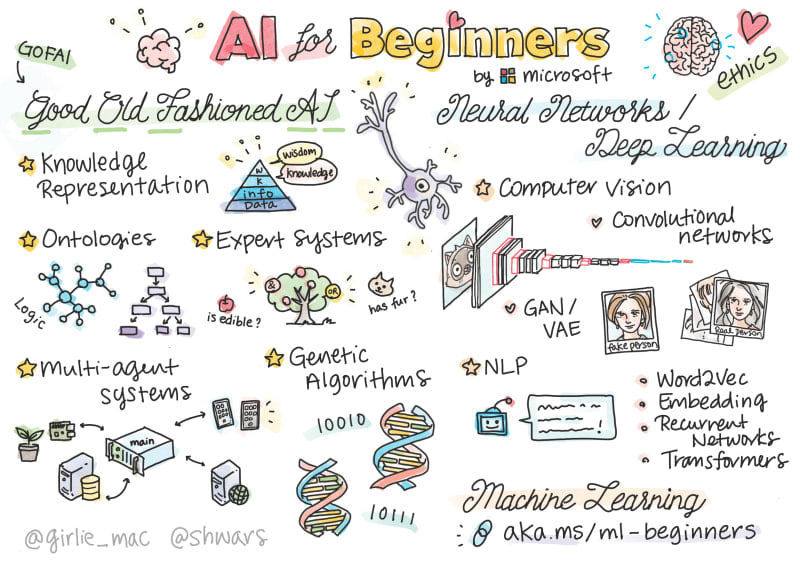 AI for Beginners
by microsoft
GOFAI
ethics
Good Old Fashioned AI
Knowledge
Representation
wisdom
knowledge
W
K
info
Data
Ontologies
Logic
Expert Systems
&
OR
is edible?
has fur?
Multi-agent
systems
main
Genetic
Algorithms
10010
10111
Neural Networks /
Deep Learning
Computer Vision
Convolutional
networks
GAN/
VAE
fake person
real person
NLP
Word2Vec
Embedding
Recurrent
Networks
Transformers
Machine Learning
aka.ms/ml-beginners
@girlie_mac @shwars